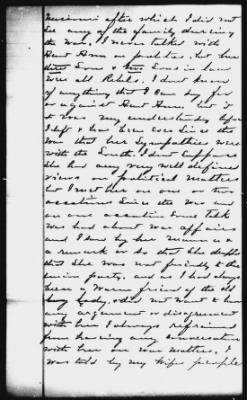 Missouri after which I did not
see any of the family during
the War, I never talked with
Aunt Ann on politics, but her
Sons & two Sons in law
were all Rebels. I dont know
of anything that I can say for
or against Aunt Ann, but it
was my understanding before
I left & has been ever since the
War that her Sympathies were
with the South. I dont suppose
She had any very well defined
views on political matters
but I met her on one or two
occasions Since the War and
on one occasion Some talk
was had about War affairs
and I knew by her manner &
a remark or so that She dropped
that She was not friendly to the
Union party, and as I had always
been a warm friend of the old
lady, & did not want to have
any argument or disagreement
with her I always refrained
from having any conversation
with her on War matters. I
was told by my Wife's people